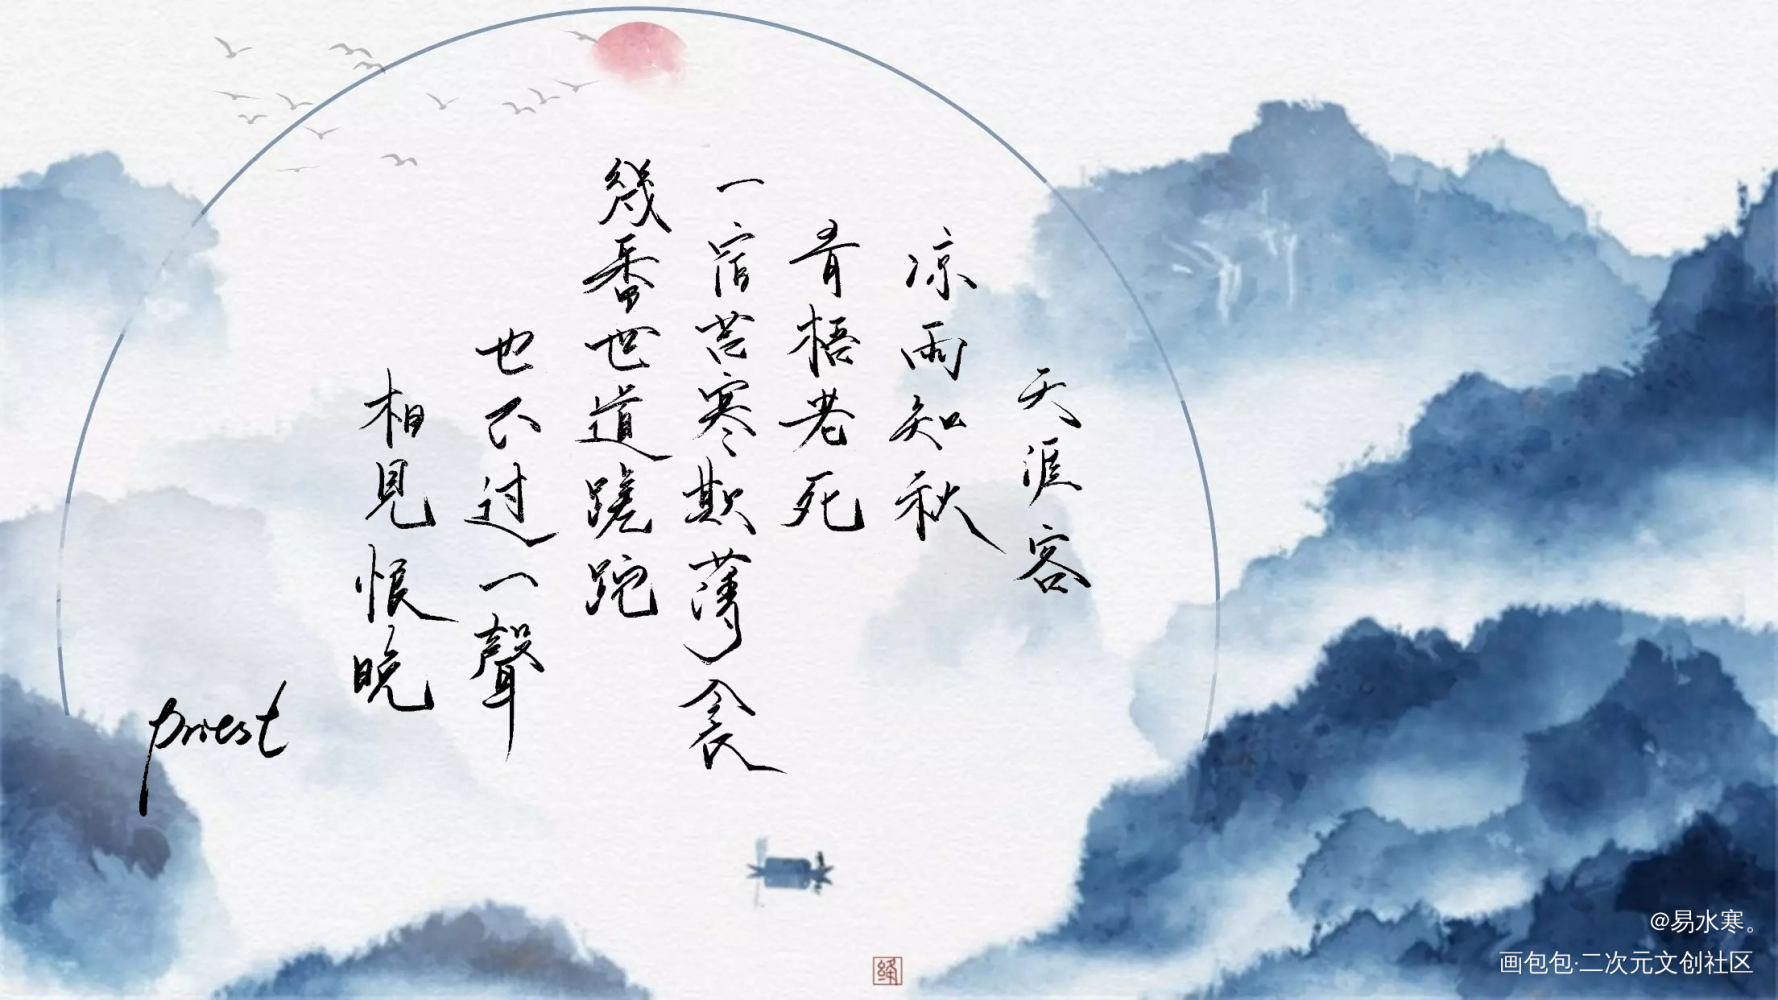 天涯客
凉雨知秋
青梧老死
一宿苦寒欺薄衾
幾番世道蹉跎
也不过一聲
相見恨晚
priest
@易水寒。
画包包·二次元文创社区